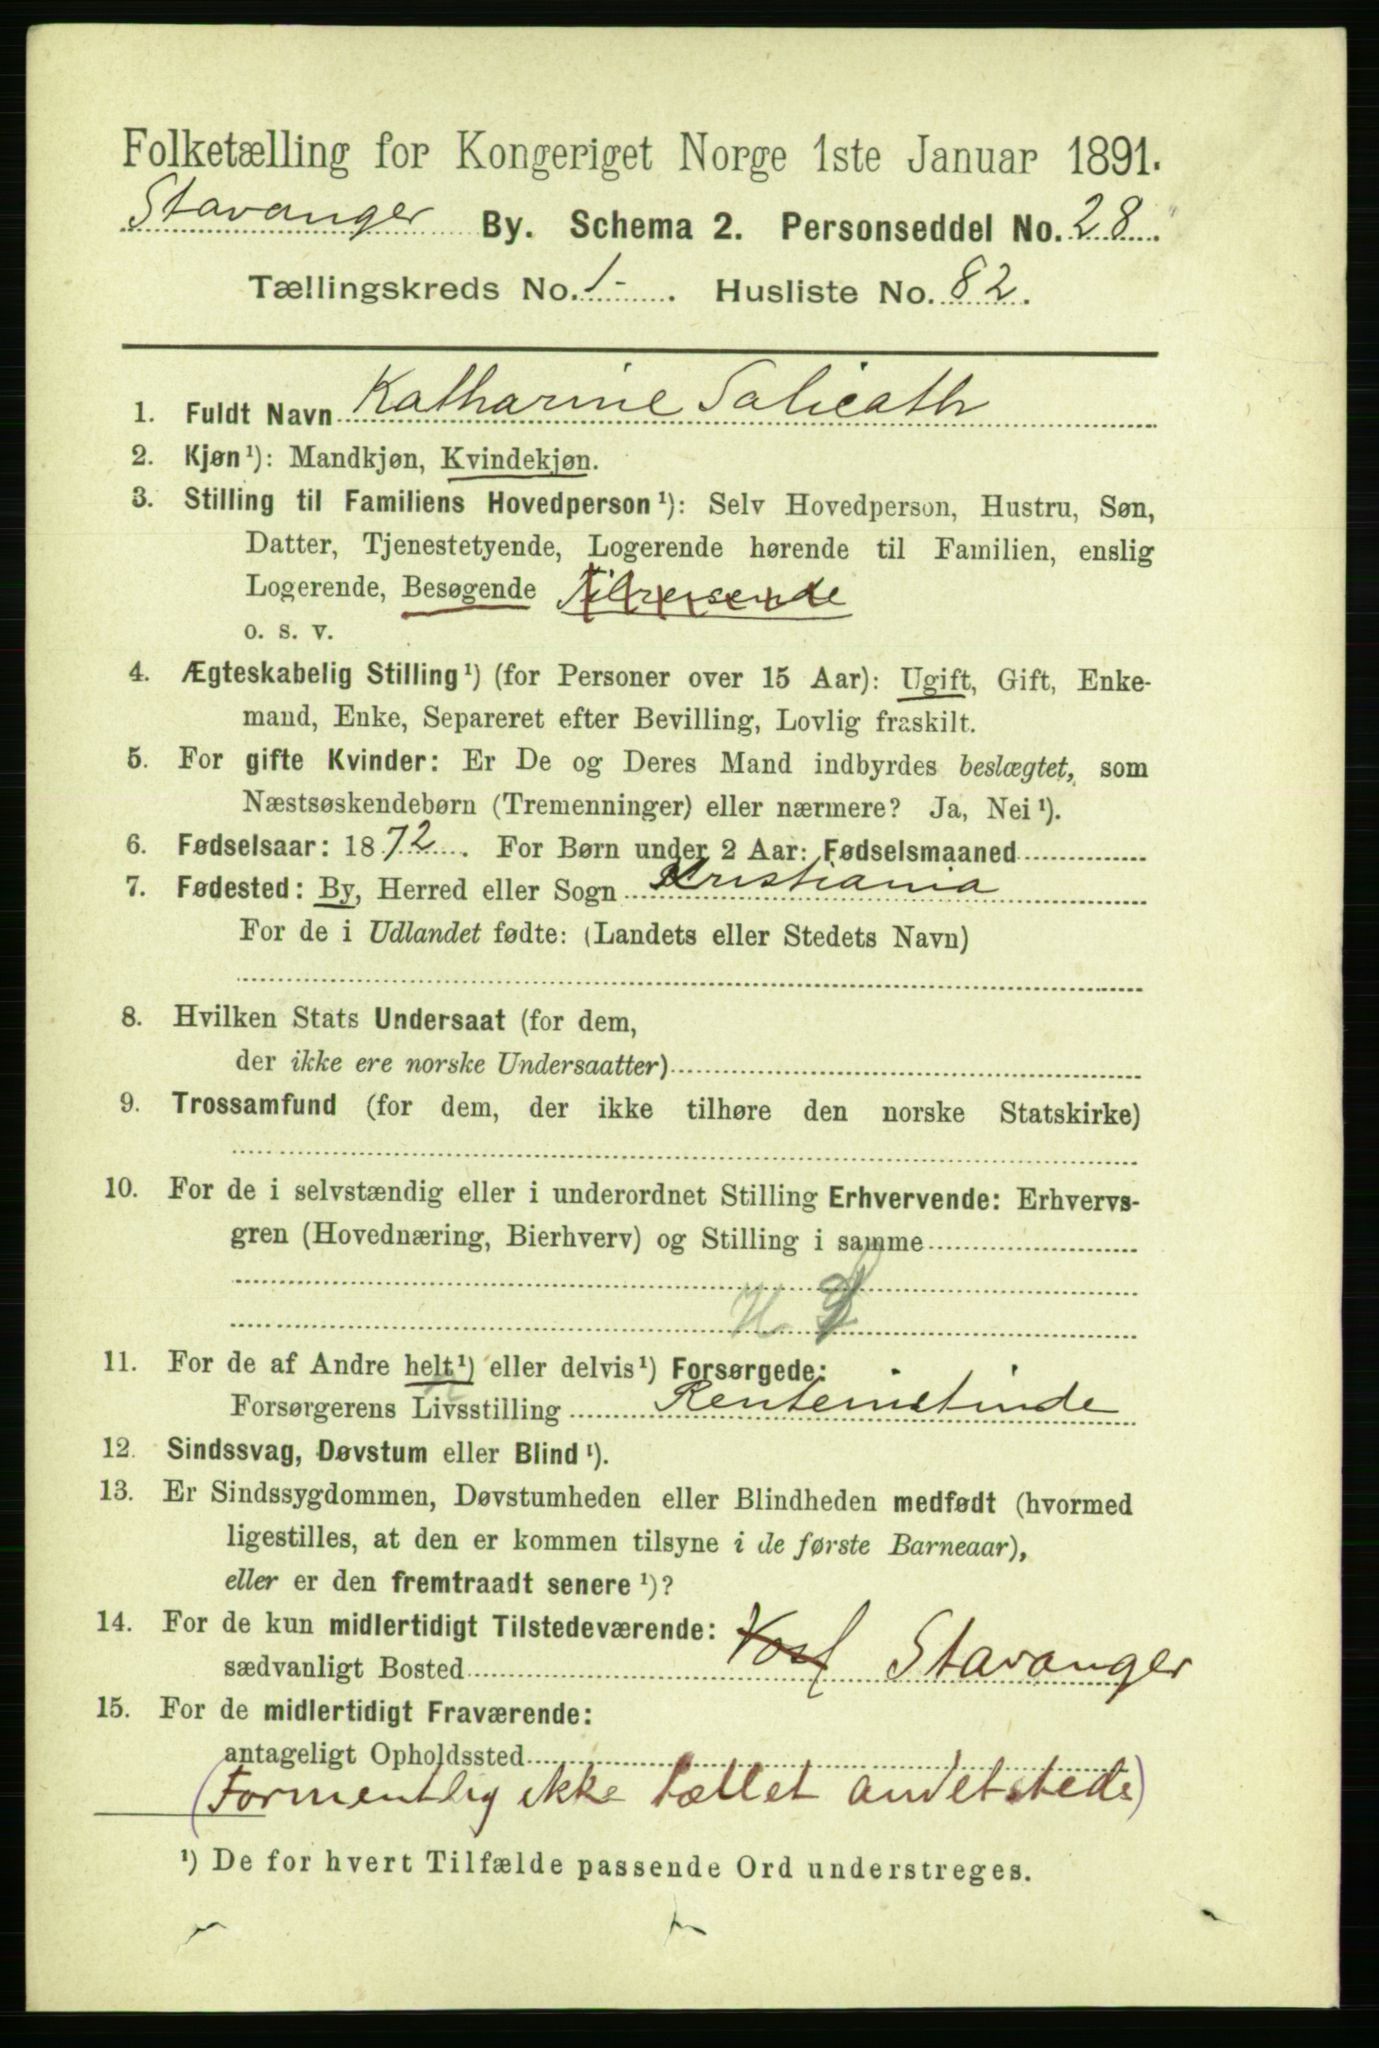 Folketælling for Kongeriget Norge 1ste Januar 1891.
Stavanger By. Schema 2. Personseddel No. 28.
Tællingskreds No. 1-. Husliste No. 82.
1. Fuldt Navn Katharine Salicath
2. Kjøn¹): Mandkjøn, Kvindekjøn.
3. Stilling til Familiens Hovedperson¹): Selv Hovedperson, Hustru, Søn,
Datter, Tjenestetyende, Logerende hørende til Familien, enslig
Logerende, Besøgende Tilreisende
o. s. v.
4. Ægteskabelig Stilling¹) (for Personer over 15 Aar): Ugift, Gift, Enke-
mand, Enke, Separeret efter Bevilling, Lovlig fraskilt.
5. For gifte Kvinder: Er De og Deres Mand indbyrdes beslægtet, som
Næstsøskendebørn (Tremenninger) eller nærmere? Ja, Nei¹).
6. Fødselsaar: 1872. For Børn under 2 Aar: Fødselsmaaned
7. Fødested: By, Herred eller Sogn Kristiania
For de i Udlandet fødte: (Landets eller Stedets Navn)
8. Hvilken Stats Undersaat (for dem,
der ikke ere norske Undersaatter)
9. Trossamfund (for dem, der ikke tilhøre den norske Statskirke)
10. For de i selvstændig eller i underordnet Stilling Erhvervende: Erhvervs-
gren (Hovednæring, Bierhverv) og Stilling i samme
11. For de af Andre helt¹) eller delvis¹) Forsørgede:
Forsørgerens Livsstilling Rentenistinde
12. Sindssvag, Døvstum eller Blind¹).
13. Er Sindssygdommen, Døvstumheden eller Blindheden medfødt (hvormed
ligestilles, at den er kommen tilsyne i de første Barneaar),
eller er den fremtraadt senere¹)?
14. For de kun midlertidigt Tilstedeværende:
sædvanligt Bosted Stavanger
15. For de midlertidigt Fraværende:
antageligt Opholdssted
(Formentlig ikke tællet andetsteds)
¹) De for hvert Tilfælde passende Ord understreges.